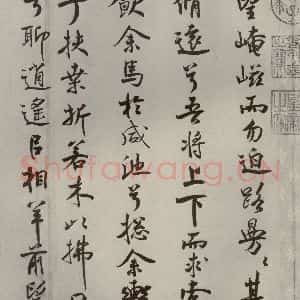 望崦嵫而勿迫路曼〻其
脩遠兮吾將上下而求索
飲余馬於咸池兮揔余轡
于扶桒折若木以拂日
兮聊逍遙目相羊前
Shufawang.CN